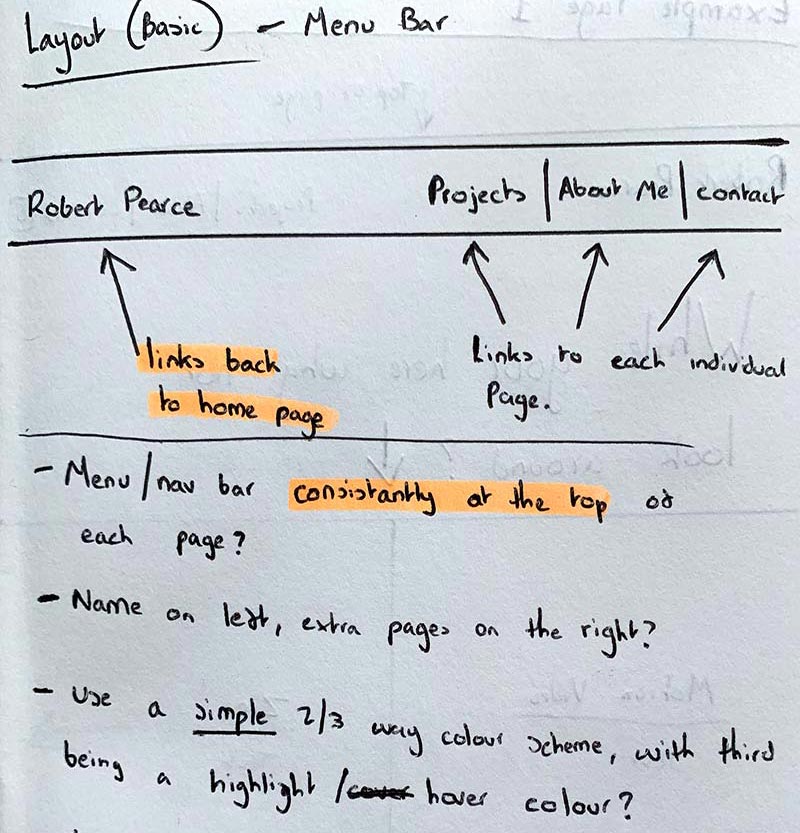 Layout (Basic) - Menu Bar
Robert Pearce Projects | About Me | contact
links back
to home page
Links to each individual
Page.
- Menu/nav bar consistantly at the top of
each page?
- Name on left, extra pages on the right?
- Use a simple 2/3 way colour scheme, with third
being a highlight / cover hover colour?